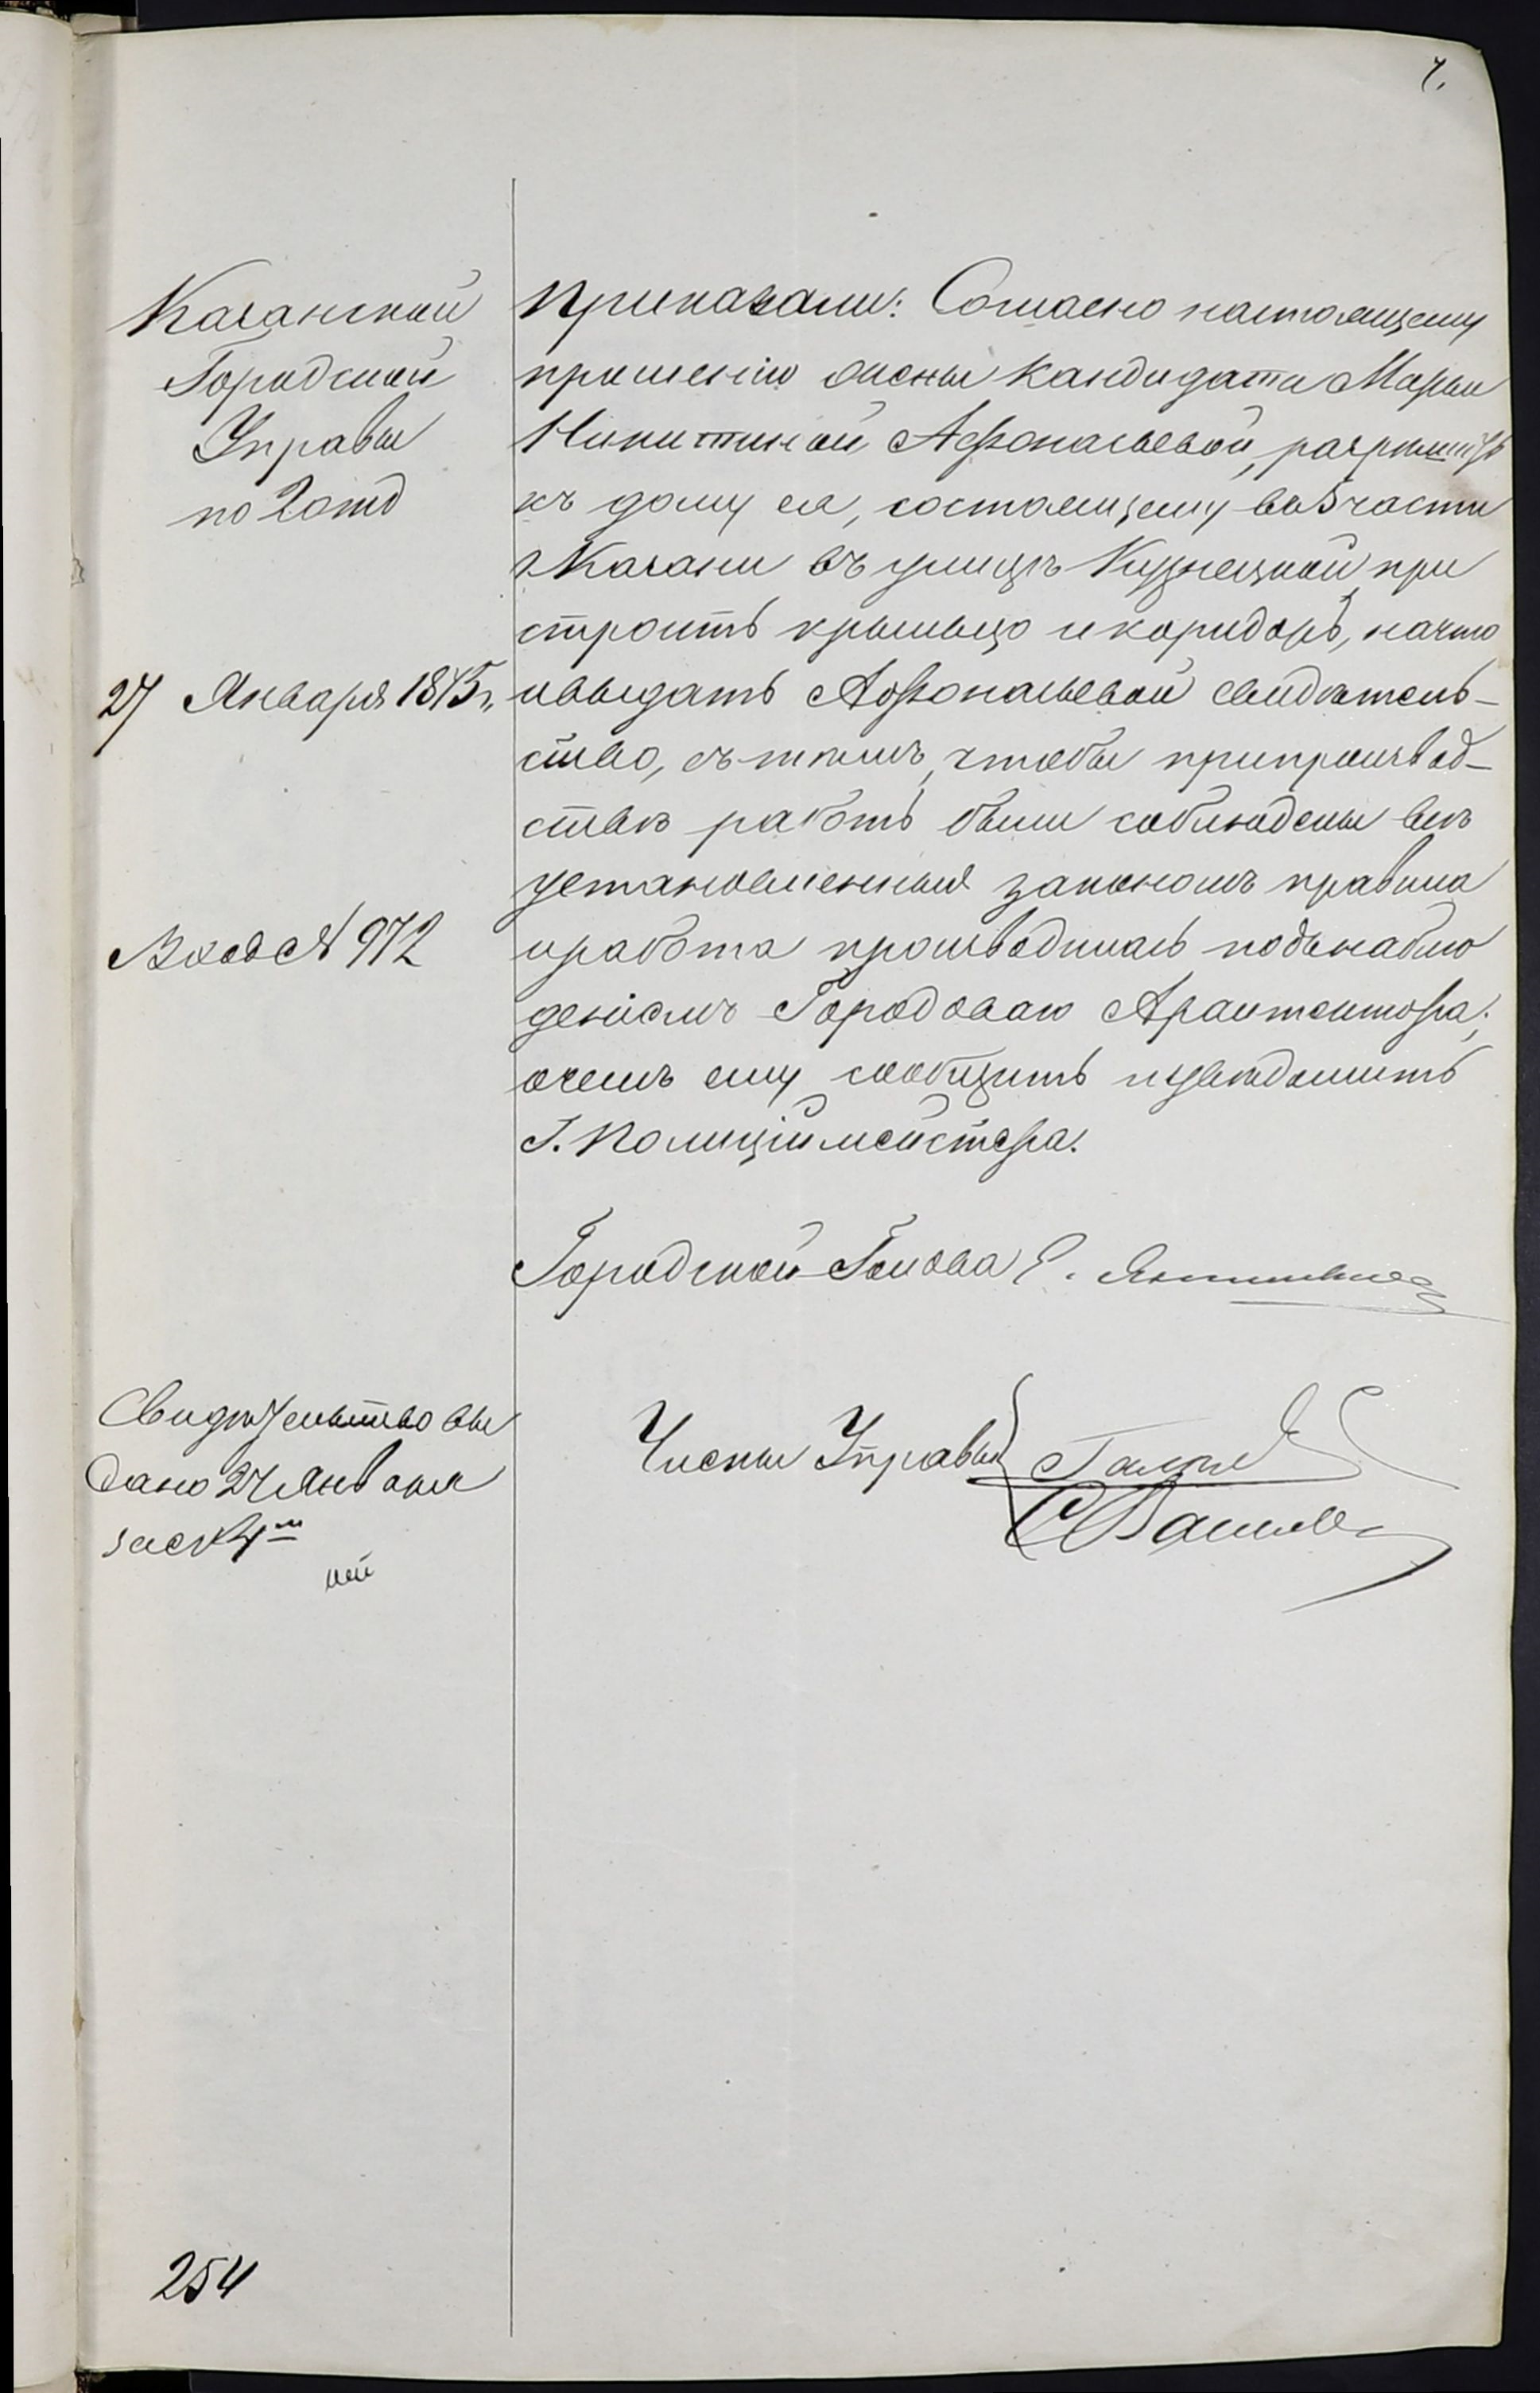 7.
Казанской
Городской
Управы
по 2 отд
27 Января 1875 г.
Вход № 972
Приказали: Согласно настоящему
прошенію жены Кандидата Марьи
Никитиной Афонасьевой, разрѣшить
къ дому ея, состоящему во 5 части
г Казани въ улицѣ Кузнецкой при
строить крыльцо и коридоръ, на что
и выдать Афонасьевой свидѣтель-
ство, съ тѣмъ, чтобы при производ-
ствѣ работъ были соблюдены всѣ
установленныя закономъ правила
и работа производилась подъ наблю
деніемъ Городоваго Архитектора;
о чемъ ему сообщить и увѣдомить
Г. Полиціймейстера.
Городской Голова Е.
Члены Управы
Свидѣтельство вы
дано 27 Января
за №
254